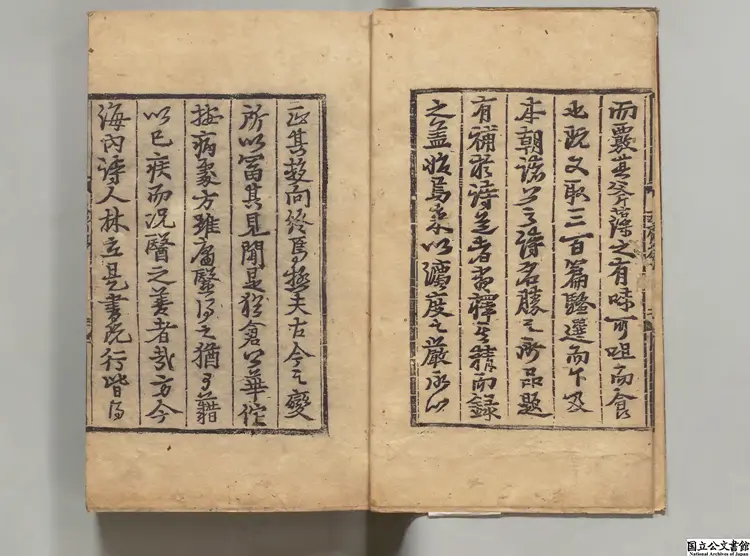 而覈其斧藻之有味可咀而食
也既又取三百篇騷選而下及
本朝諸公之詩名勝之所品題
有補於詩道者盡擇其精而錄
之盖始焉束以法度之嚴所以
正其趨向終焉極夫古今之變
所以富其見聞是猶倉公華佗
按病處方雖庸醫得之猶可藉
以已疾而况醫之善者哉方今
海內詩人林立是書既行皆得
国立公文書館
National Archives of Japan